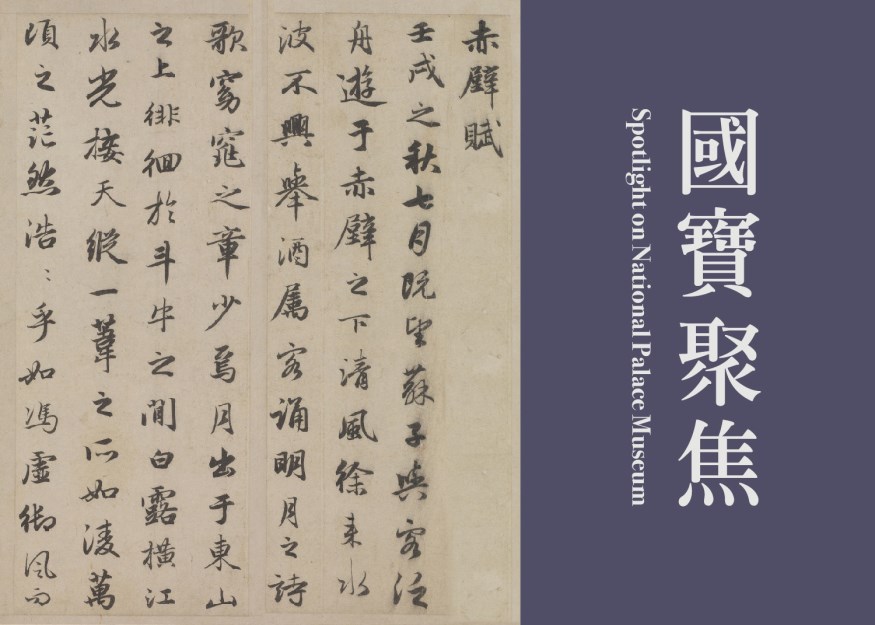 國寶聚焦
Spotlight on National Palace Museum
赤壁賦
壬戌之秋七月既望蘇子與客泛
舟遊于赤壁之下清風徐来水
波不興舉酒属客誦明月之詩
歌窈窕之章少焉月出于東山
之上徘徊於斗牛之間白露橫江
水光接天縱一葦之所如凌萬
頃之茫然浩〻乎如馮虛御風而